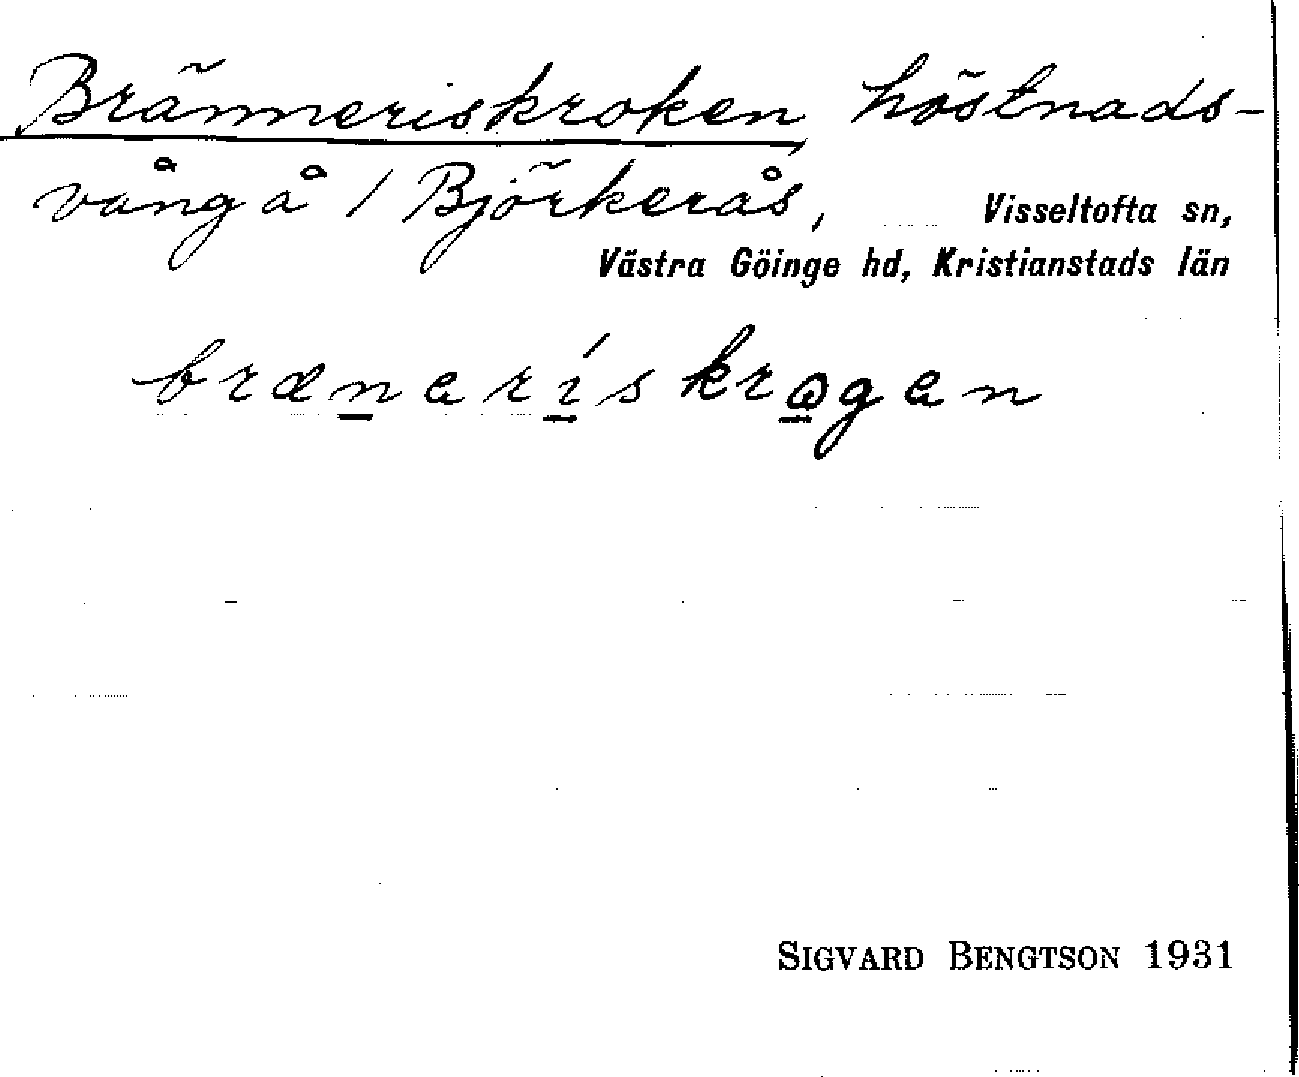 Bränneriskroken, höstnads-
vång å 1 Björkerås, Visseltofta sn,
Västra Göinge hd, Kristianstads län
brænerískrogen
SIGVARD BENGTSON 1931